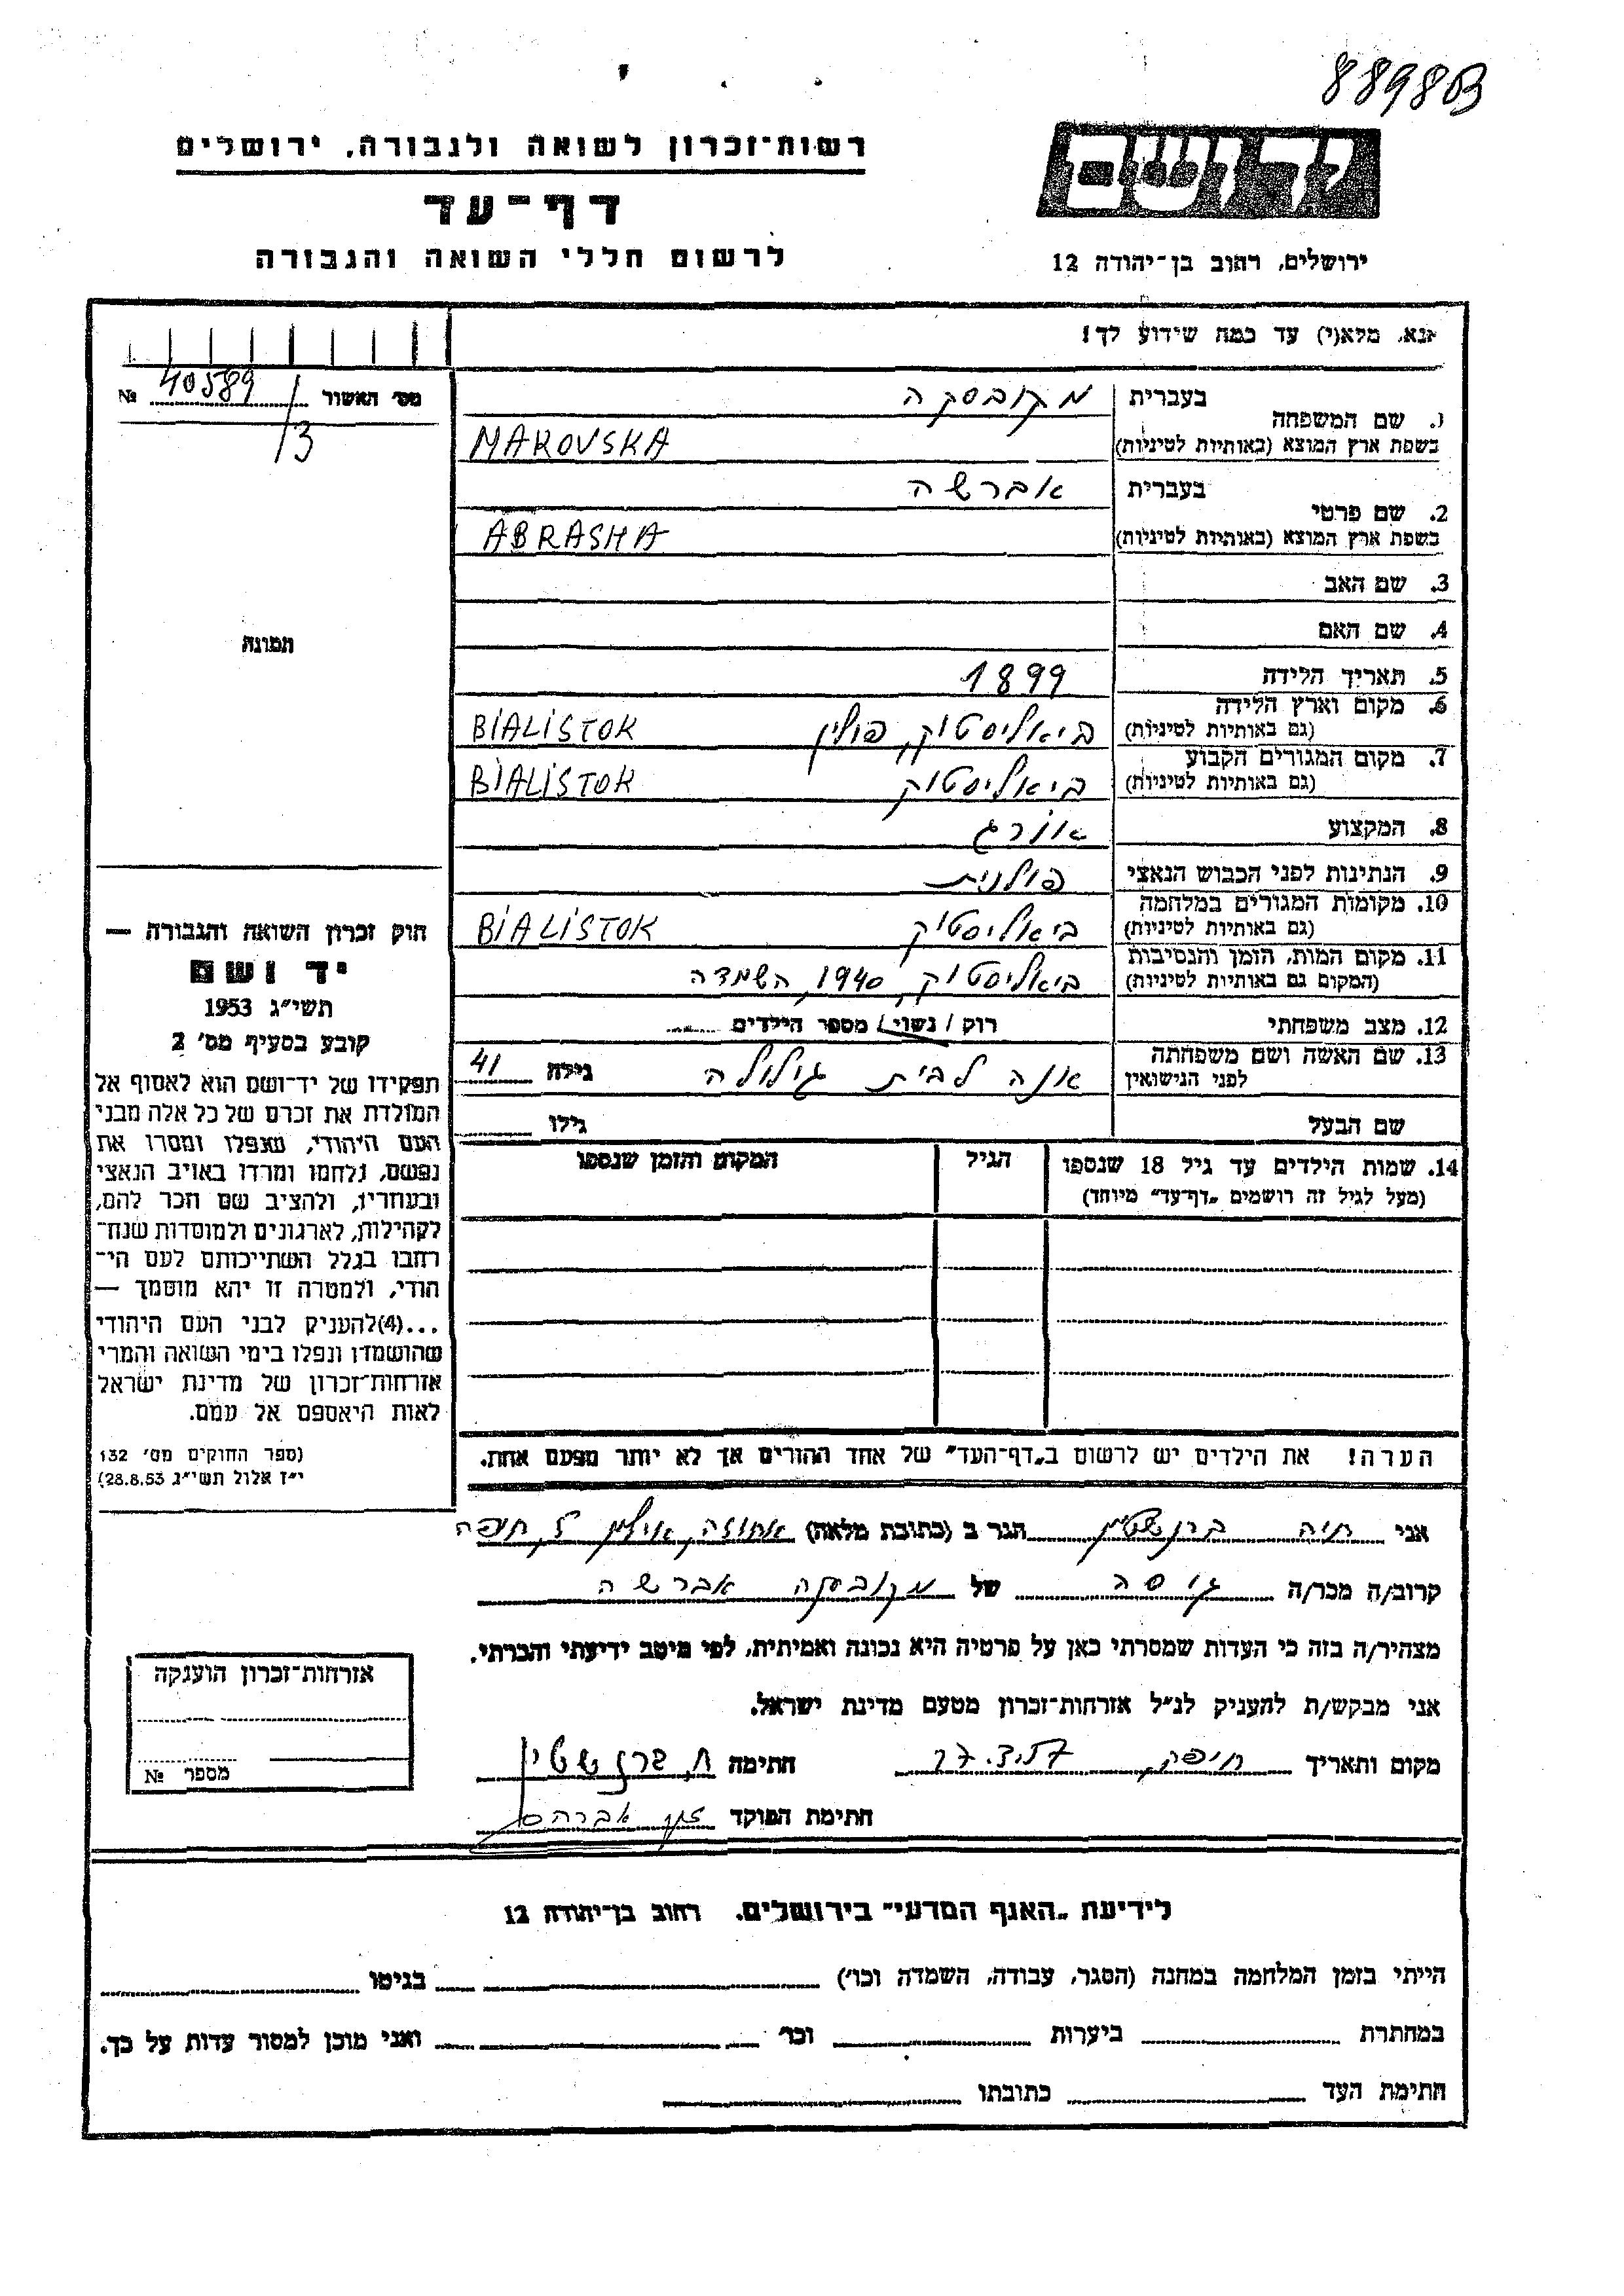 88980B
רשות־זכרון לשואה ולגבורה, ירושלים
דף־עד
לרשום חללי השואה והגבורה
יד ושם
ירושלים, רחוב בן־יהודה 12
אנא, מלא(י) עד כמה שידוע לך!
מס׳ האשור 40589 №
/3
תמונה
חוק זכרון השואה והגבורה —
יד ושם
תשי״ג 1953
קובע בסעיף מס׳ 2
תפקידו של יד־ושם הוא לאסוף אל
המולדת את זכרם של כל אלה מבני
העם היהודי, שנפלו ומסרו את
נפשם, נלחמו ומרדו באויב הנאצי
ובעוזריו, ולהציב שם וזכר להם,
לקהילות, לארגונים ולמוסדות שנח־
רחבו בגלל השתייכותם לעם הי־
הודי, ולמטרה זו יהא מוסמך —
...(4)להעניק לבני העם היהודי
שהושמדו ונפלו בימי השואה והמרי
אזרחות־זכרון של מדינת ישראל
לאות היאספם אל עמם.
(ספר החוקים מס׳ 132
י״ז אלול תשי״ג 28.8.53)
1. שם המשפחה
בעברית מקובסקה
בשפת ארץ המוצא (באותיות לטיניות) MAKOVSKA
2. שם פרטי
בעברית אברשה
בשפת ארץ המוצא (באותיות לטיניות) ABRASHA
3. שם האב
4. שם האם
5. תאריך הלידה 1899
6. מקום וארץ הלידה
(גם באותיות לטיניות) ביאליסטוק, פולין BIALISTOK
7. מקום המגורים הקבוע
(גם באותיות לטיניות) ביאליסטוק BIALISTOK
8. המקצוע אורג
9. הנתינות לפני הכבוש הנאצי פולנית
10. מקומות המגורים במלחמה
(גם באותיות לטיניות) ביאליסטוק BIALISTOK
11. מקום המות, הזמן והנסיבות
(המקום גם באותיות לטיניות) ביאליסטוק, 1940, השמדה
12. מצב משפחתי רוק / נשוי / מספר הילדים
13. שם האשה ושם משפחתה
לפני הנישואין אנה לבית גילה 41
שם הבעל גילו
14. שמות הילדים עד גיל 18 שנספו הגיל המקום והזמן שנספו
(מעל לגיל זה רושמים „דף־עד״ מיוחד)
הערה! את הילדים יש לרשום ב„דף־העד״ של אחד ההורים אך לא יותר מפעם אחת.
אני חיה ברנשטין הגר ב (כתובת מלאה) אחוזה, חיפה
קרוב/ה מכר/ה גיסה של מקובסקה אברשה
מצהיר/ה בזה כי העדות שמסרתי כאן על פרטיה היא נכונה ואמיתית, לפי מיטב ידיעתי והכרתי.
אני מבקש/ת להעניק לנ״ל אזרחות־זכרון מטעם מדינת ישראל.
מקום ותאריך חיפה, 27.3.57 חתימה ח. ברנשטין
חתימת הפוקד אברהם
אזרחות־זכרון הוענקה
מספר №
לידיעת „האגף המדעי״ בירושלים, רחוב בן־יהודה 12
הייתי בזמן המלחמה במחנה (הסגר, עבודה, השמדה וכו׳) בגיטו
במחתרת ביערות וכו׳ ואני מוכן למסור עדות על כך.
חתימת העד כתובתו